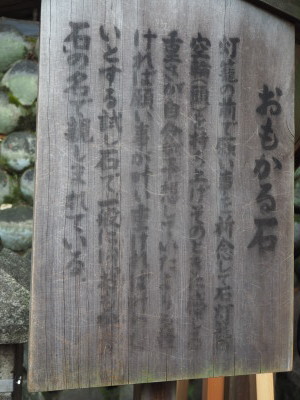 おもかる石
灯籠の前で願い事を祈念して石灯籠の
空輪(頭)を持ち上げ、そのときに感じる
重さが自分の予想していたよりも軽
ければ願い事が叶い、重ければ叶い難
いとする試し石で一般には「おもかる
石」の名で親しまれている。